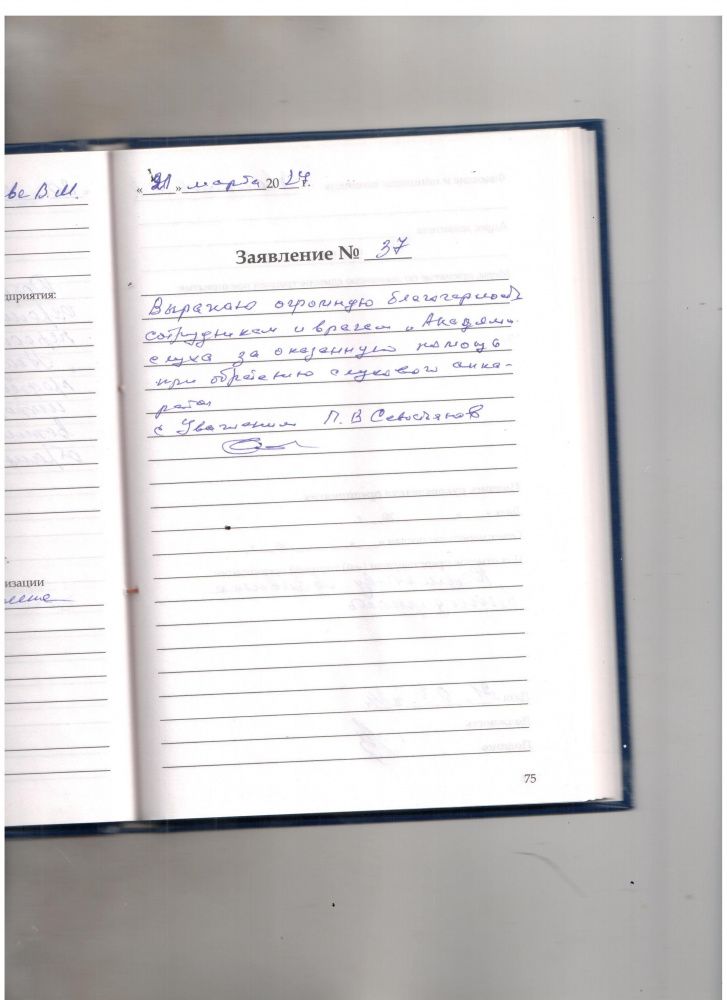 ве В.М.
дприятия:
изации
«21» марта 2024 г.
Заявление № 37
Выражаю огромную благодарность
сотрудникам и врачам „Академии
слуха за оказанную помощь
при обретению слухового аппа-
рата
с Уважением П. В Севостьянов
75